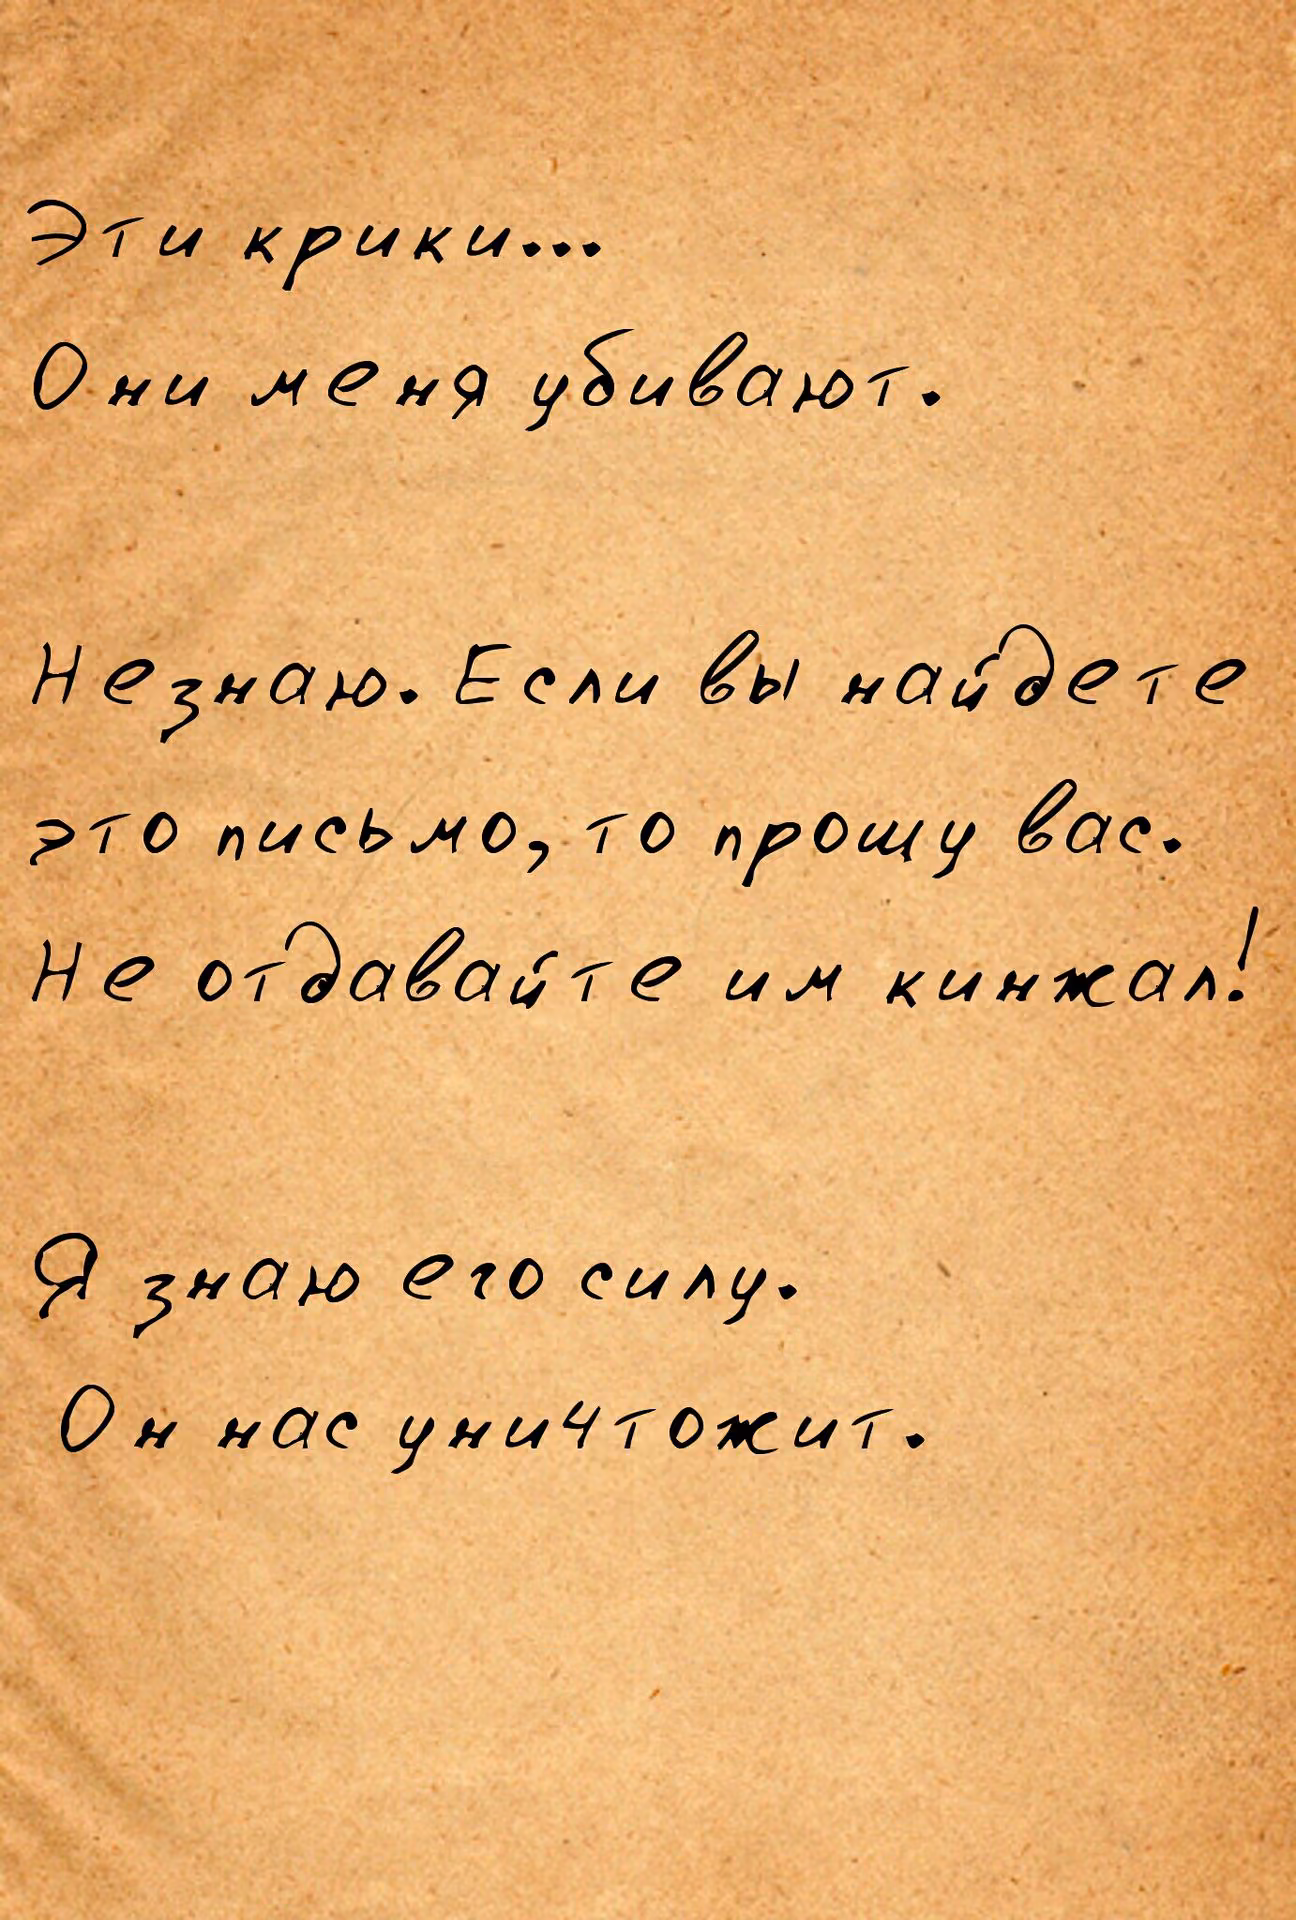 Эти крики...
Они меня убивают.
Незнаю. Если вы найдете
это письмо, то прошу вас.
Не отдавайте им кинжал!
Я знаю его силу.
Он нас уничтожит.